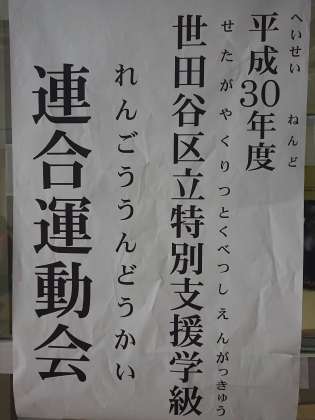 へいせい ねんど
平成30年度
せたがやくりつとくべつしえんがっきゅう
世田谷区立特別支援学級
れんごううんどうかい
連合運動会